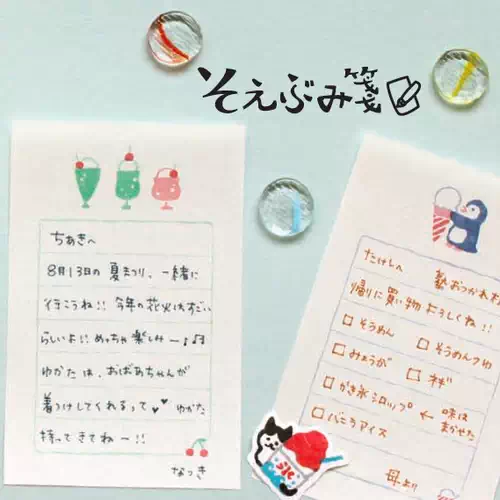 そえぶみ箋
ちあきへ
8月13日の夏まつり、一緒に
行こうね!! 今年の花火はすごい
らしいよ!! めっちゃ楽しみー♪♫
ゆかたは、おばあちゃんが
着つけしてくれるって♥♥ ゆかた
持ってきてねー!!
なつき
たけしへ 塾おつかれさ
帰りに買い物よろしくね!!
□ そうめん □ そうめんつゆ
□ みょうが □ ネギ
□ かき氷シロップ ← 味は
まかせた
□ バニラアイス
母より
氷